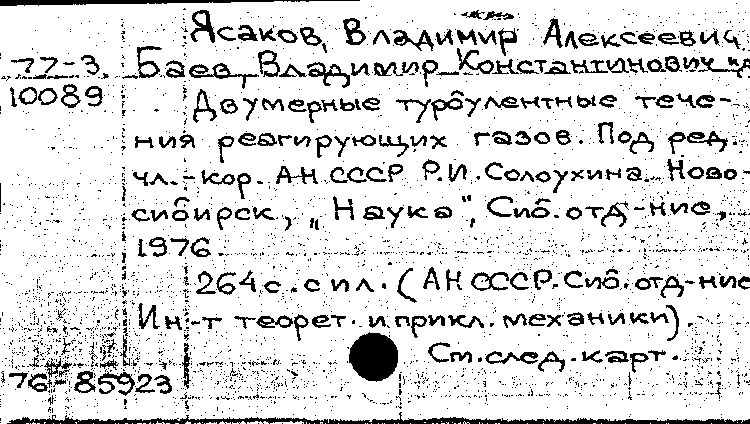 Ясаков, Владимир Алексеевич
77-3 Баев, Владимир Константинович и др
10089 Двумерные турбулентные тече-
ния реагирующих газов. Под ред.
чл.-кор. АН СССР Р.И. Солоухина. Ново-
сибирск, „Наука", Сиб. отд-ние,
1976.
264 с. с ил. (АН СССР. Сиб. отд-ние
Ин-т теорет. и прикл. механики).
См. след. карт.
76-85923